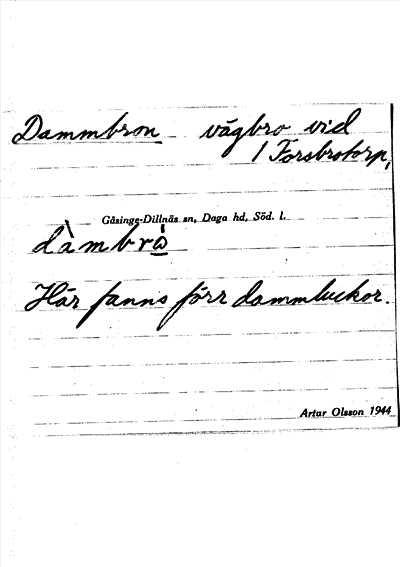 Dammbron vägbro vid
1 Forsbrotorp,
Gåsinge-Dillnäs sn, Daga hd, Söd. l.
dàmbrώ̲
Här fanns förr dammluckor.
Artur Olsson 1944